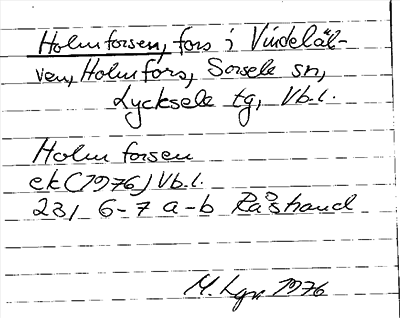 Holmforsen, fors i Vindeläl-
ven, Holmfors, Sorsele sn,
Lycksele tg, Vb.l.
Holmforsen
ek (1976) Vb.l.
23I 6-7 a-b Råstrand
M. Lgr 1976